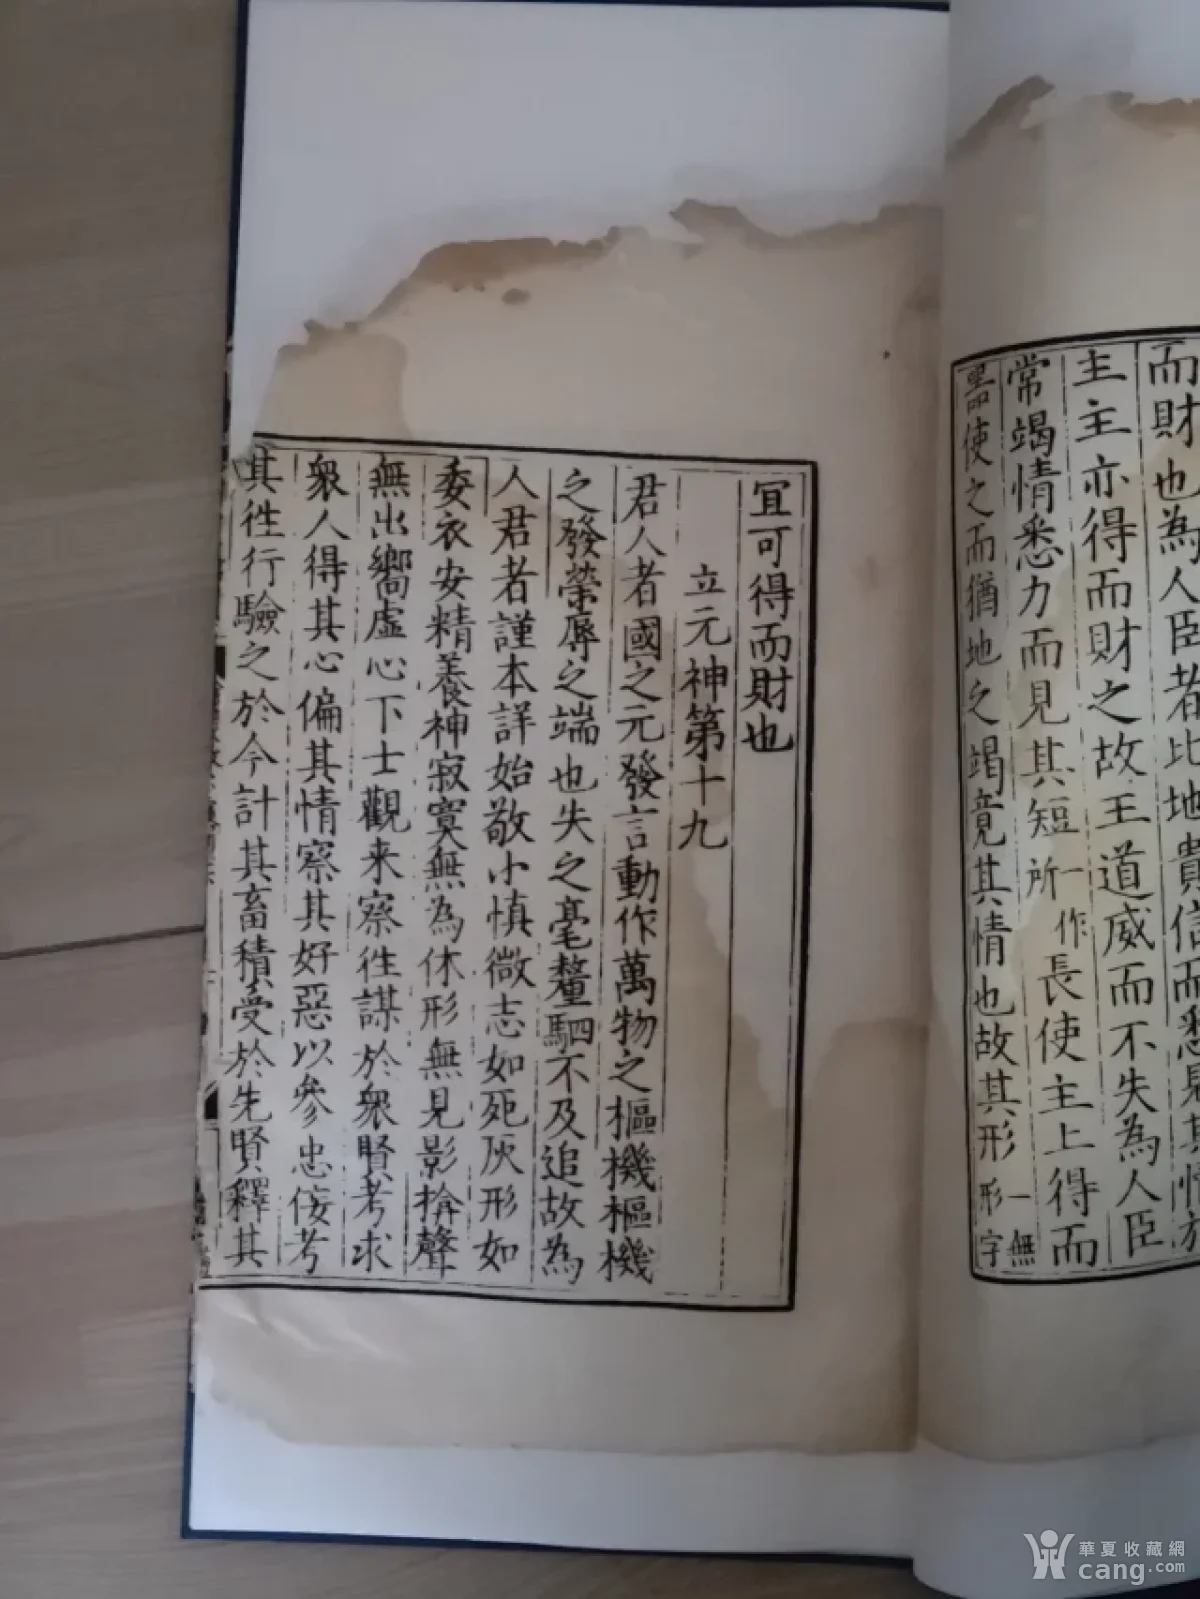 而財也為人臣者比地貴信而悉見其情於
主主亦得而財之故王道威而不失為人臣
常竭情悉力而見其短所一作長使主上得而
器使之而猶地之竭竟其情也故其形一無形字
宜可得而財也
立元神第十九
君人者國之元發言動作萬物之樞機樞機
之發榮辱之端也失之毫釐駟不及追故為
人君者謹本詳始敬小慎微志如死灰形如
委衣安精養神寂寞無為休形無見影揜聲
無出嚮虛心下士觀来察徃謀於衆賢考求
衆人得其心偏其情察其好惡以參忠佞考
其徃行驗之於今計其畜積受於先賢釋其
華夏收藏網
cang.com